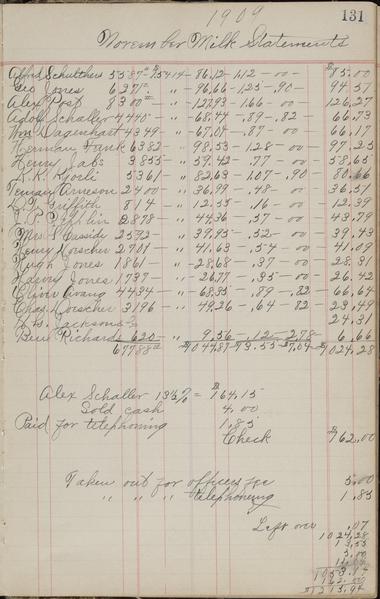 1909
131
November Milk Statements
Alfred Schulthers 5587 # $15414 - 86.12 - 1.12 - 00 - $85.00
Geo Jones 6371 " - 96.66 - 1.25 - .90 - 94.57
Alex Post 8300 " - 127.93 - 1.66 - 00 - 126.27
Adolf Schaller 4440 - " - 68.44 - .89 - .82 66.73
Wm Dagenhart 4349 - " - 67.04 - .87 - 00 66.17
Herman Frank 6382 " - 98.53 - 1.28 - 00 - 97.25
Henry Jabs 3855 " - 59.42 - .77 - 00 - 58.65
5361 " - 82.63 - 1.07 - .90 80.66
Arneson 2400 " - 36.99 - .48 - 00 36.51
Griffith 814 " - 12.55 - .16 - 00 12.39
2878 - " - 44.36 - .57 - 00 43.79
Mrs Cassidy 2592 - " - 39.95 - .52 - 00 39.43
Henry Hoescher 2701 - " - 41.63 - .54 - 00 41.09
Hugh Jones 1861 " - 28.68 - .37 - 00 - 28.31
Harry Jones 1737 - " - 26.77 - .35 - 00 - 26.42
Oliver 4434 - " - 68.35 - .89 - .82 66.64
Chas Hoescher 3196 - " - 49.26 - .64 - .82 - 23.49
Jacksons 24.31
Ben Richards 620 - 9.56 - .12 - 2.78 6.66
67788 # $1044.87 - $13.55 - $7.04 - $1024.28
Alex Schaller 13½% = $164.15
Sold cash 4.00
Paid for telephoning 1.85
Check $162.00
Taken out for officers fee 5.00
" " " telephoning 1.85
Left over .07
1024.28
13.55
5.00
162.00